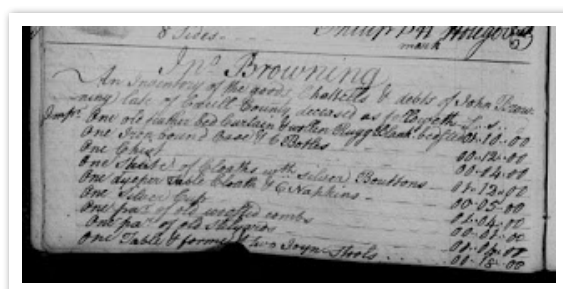 8 Sides
mark
Jno. Browning
An Inventory of the goods Chattells & debts of John Brow-
ning late of Cecill County deceased as followeth L . s . .
Impr. One old feather bed Curtain & Rugg 01-10-00
One Iron bound Case & 6 Botles 00-12-00
One Chest 00-14-00
One Shute of Cloaths with silver Bouttons 01-12-00
One dyeper Table Cloath & 6 Napkins 00-05-00
One Silver Cup 01-04-00
One par. of old combs 00-01-00
One par. of old
One Table & forme & two Joyn Stools 00-18-00